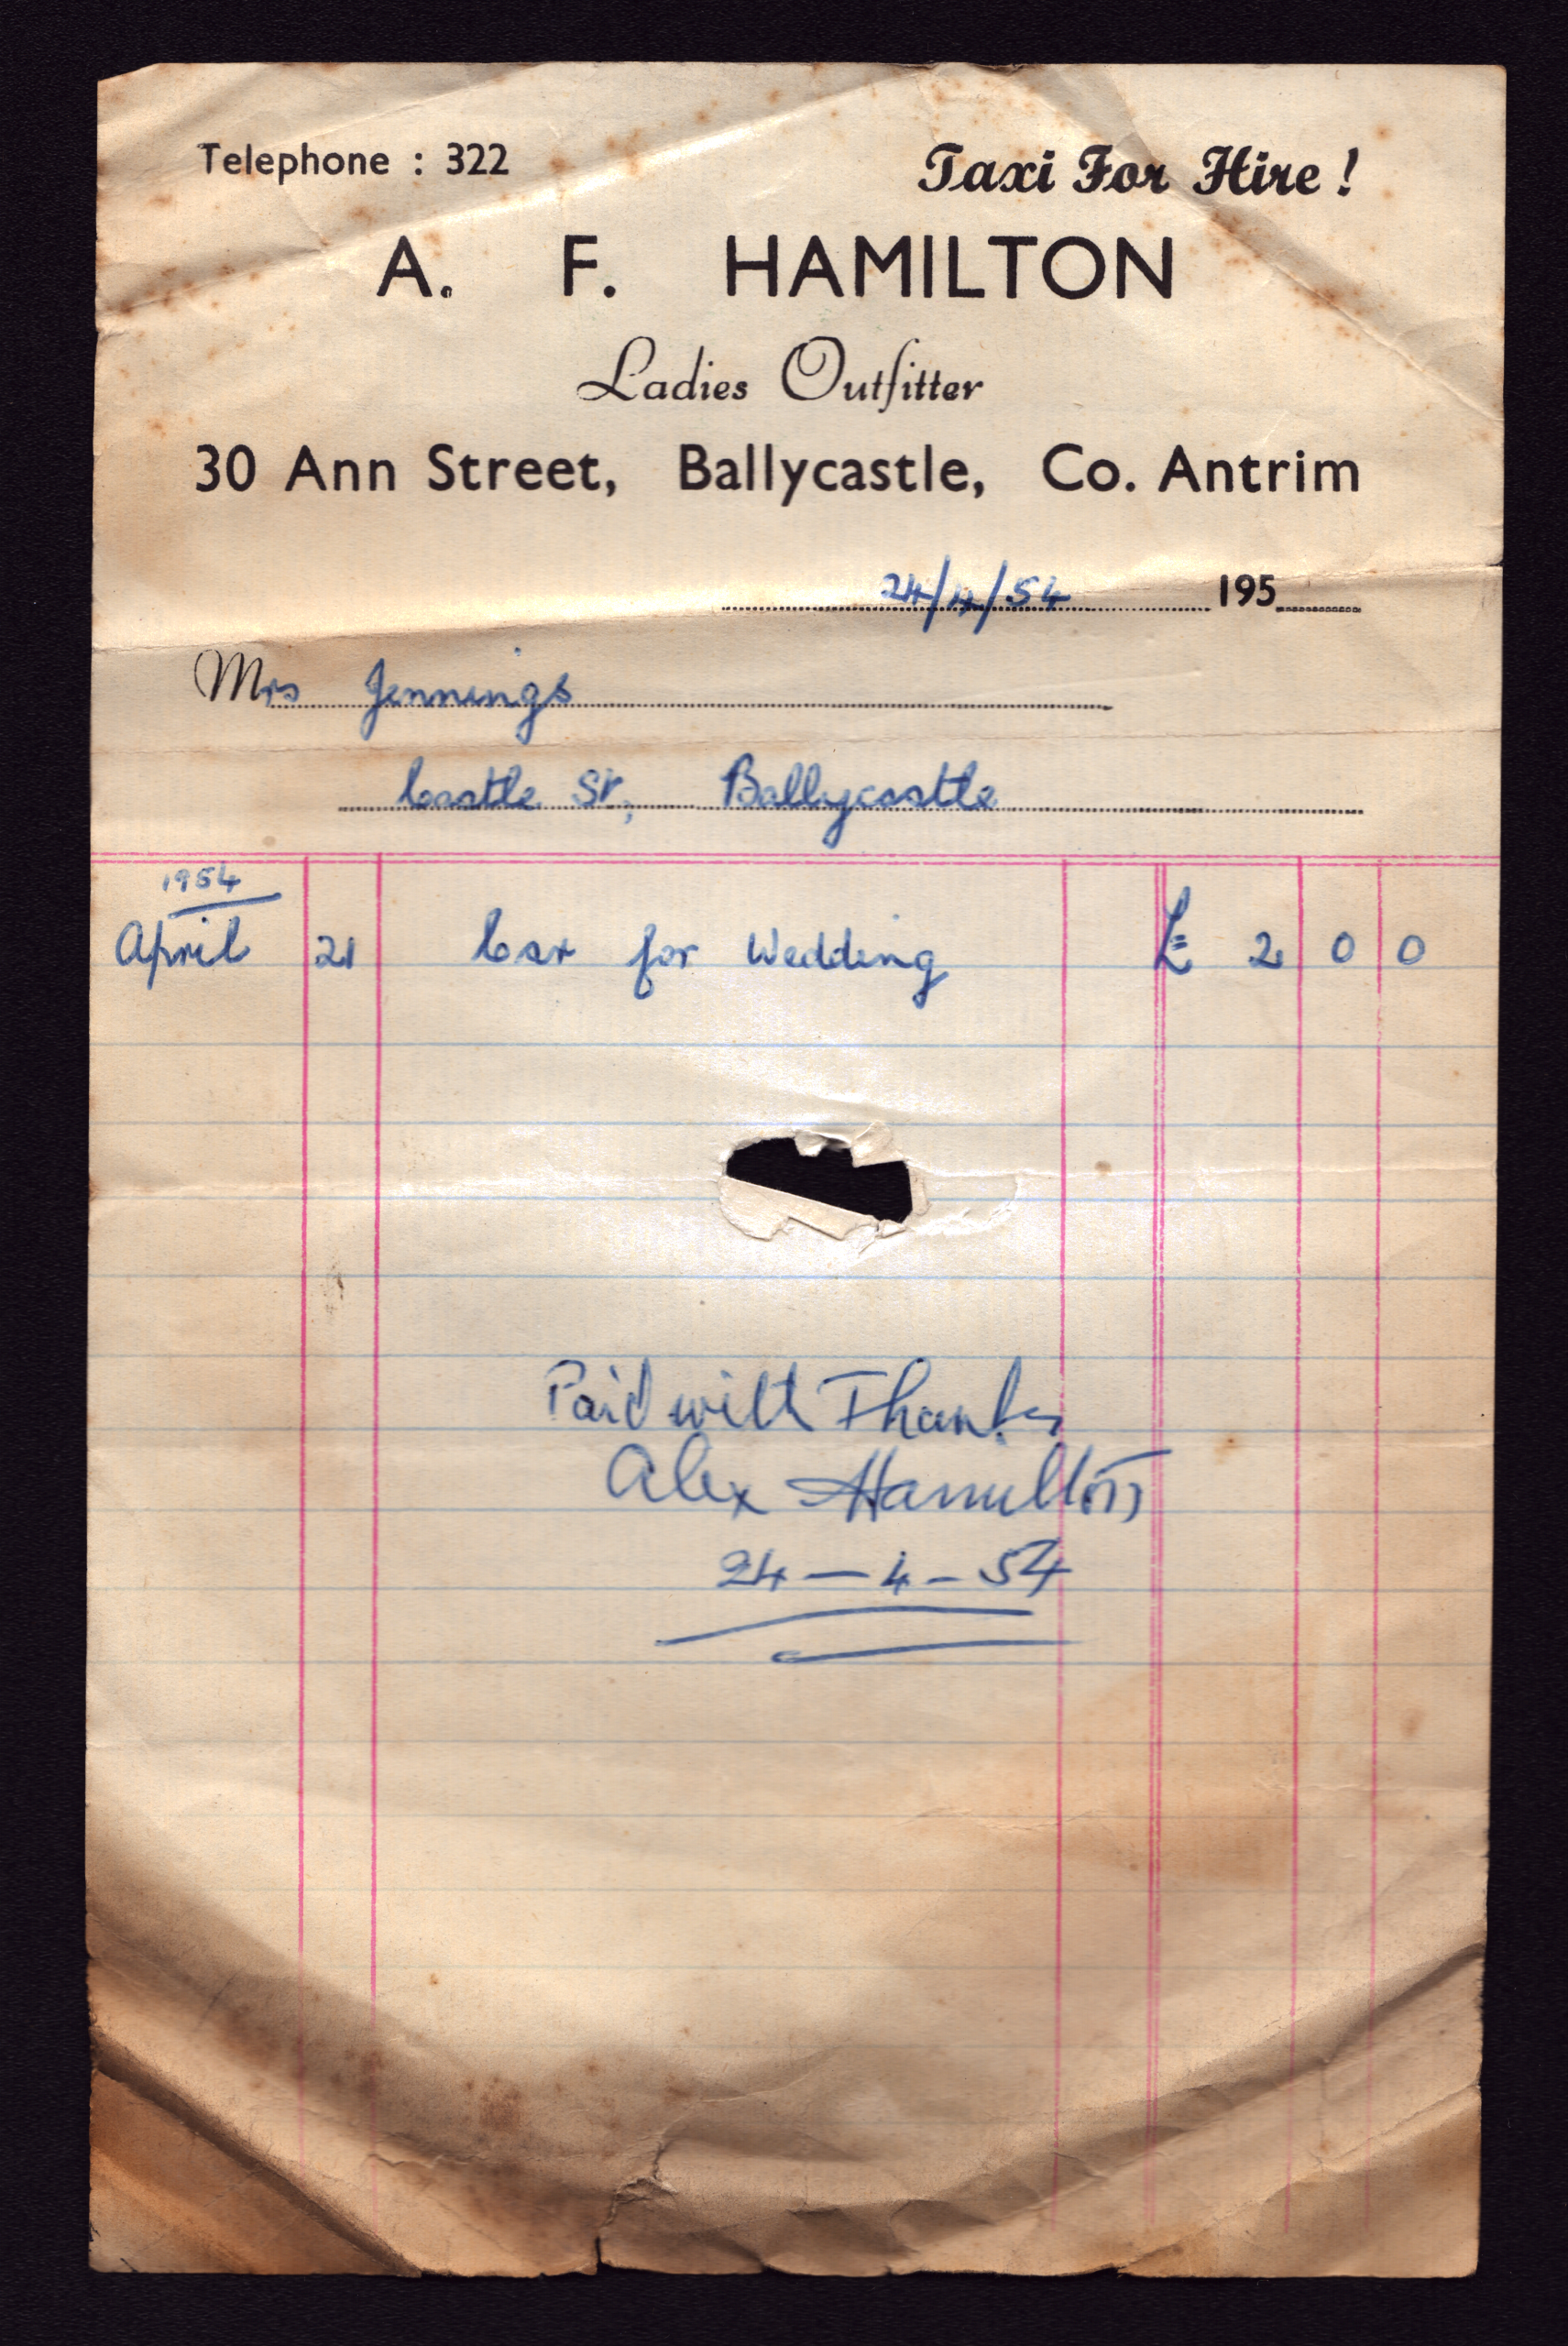 Telephone : 322 Taxi For Hire !
A. F. HAMILTON
Ladies Outfitter
30 Ann Street, Ballycastle, Co. Antrim
24/4/54 195
Mrs Jennings
Castle St, Ballycastle
1954
April 21 Car for Wedding £ 2 0 0
Paid with Thanks
Alex Hamilton
24 - 4 - 54